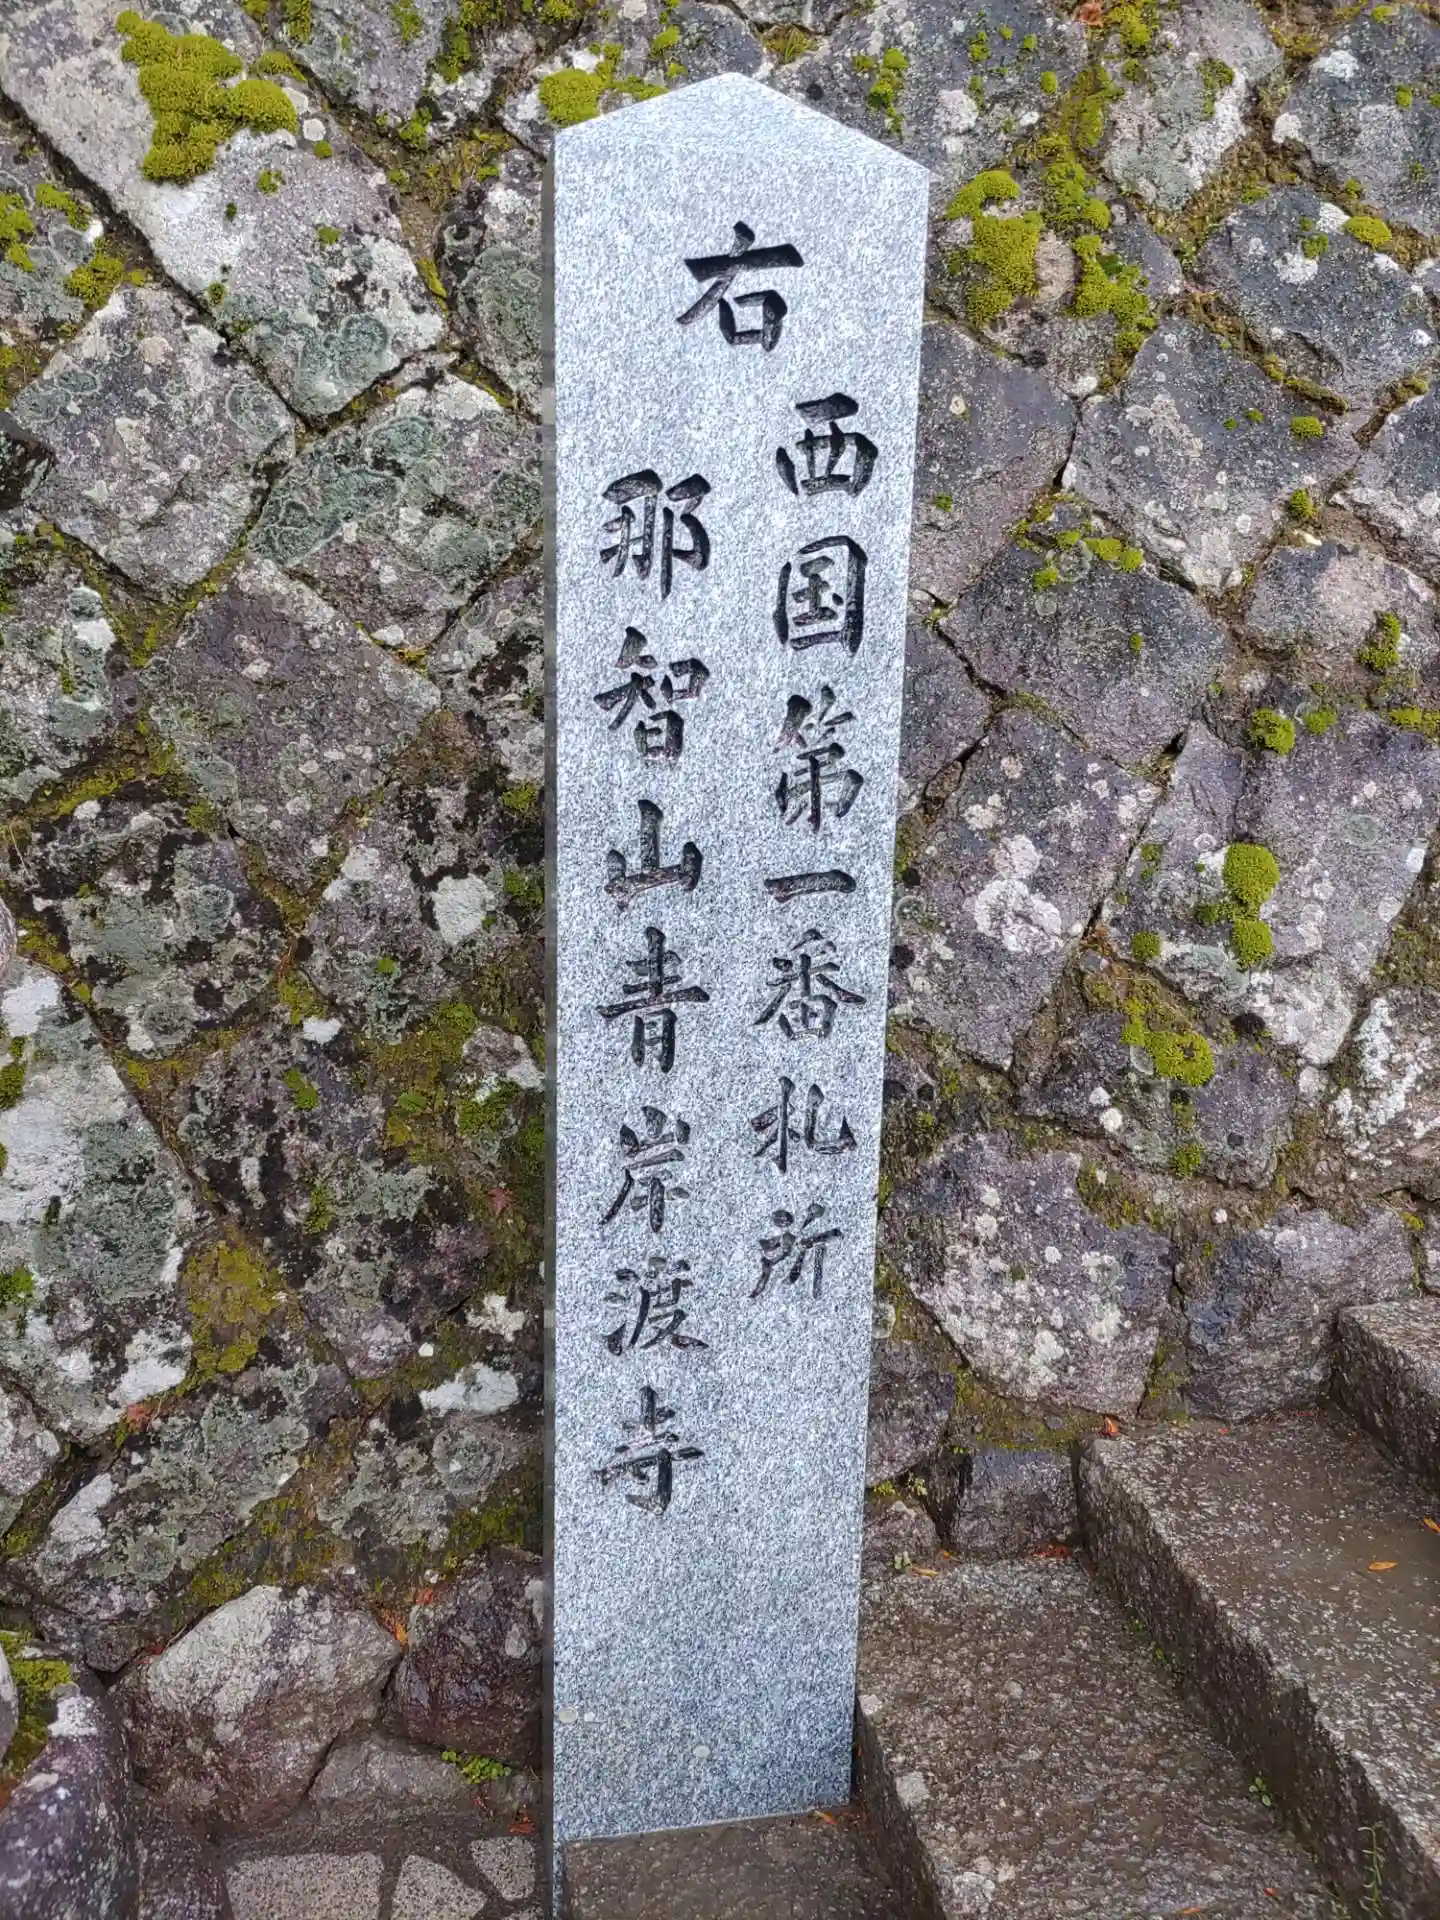 右
西国第一番札所
那智山青岸渡寺